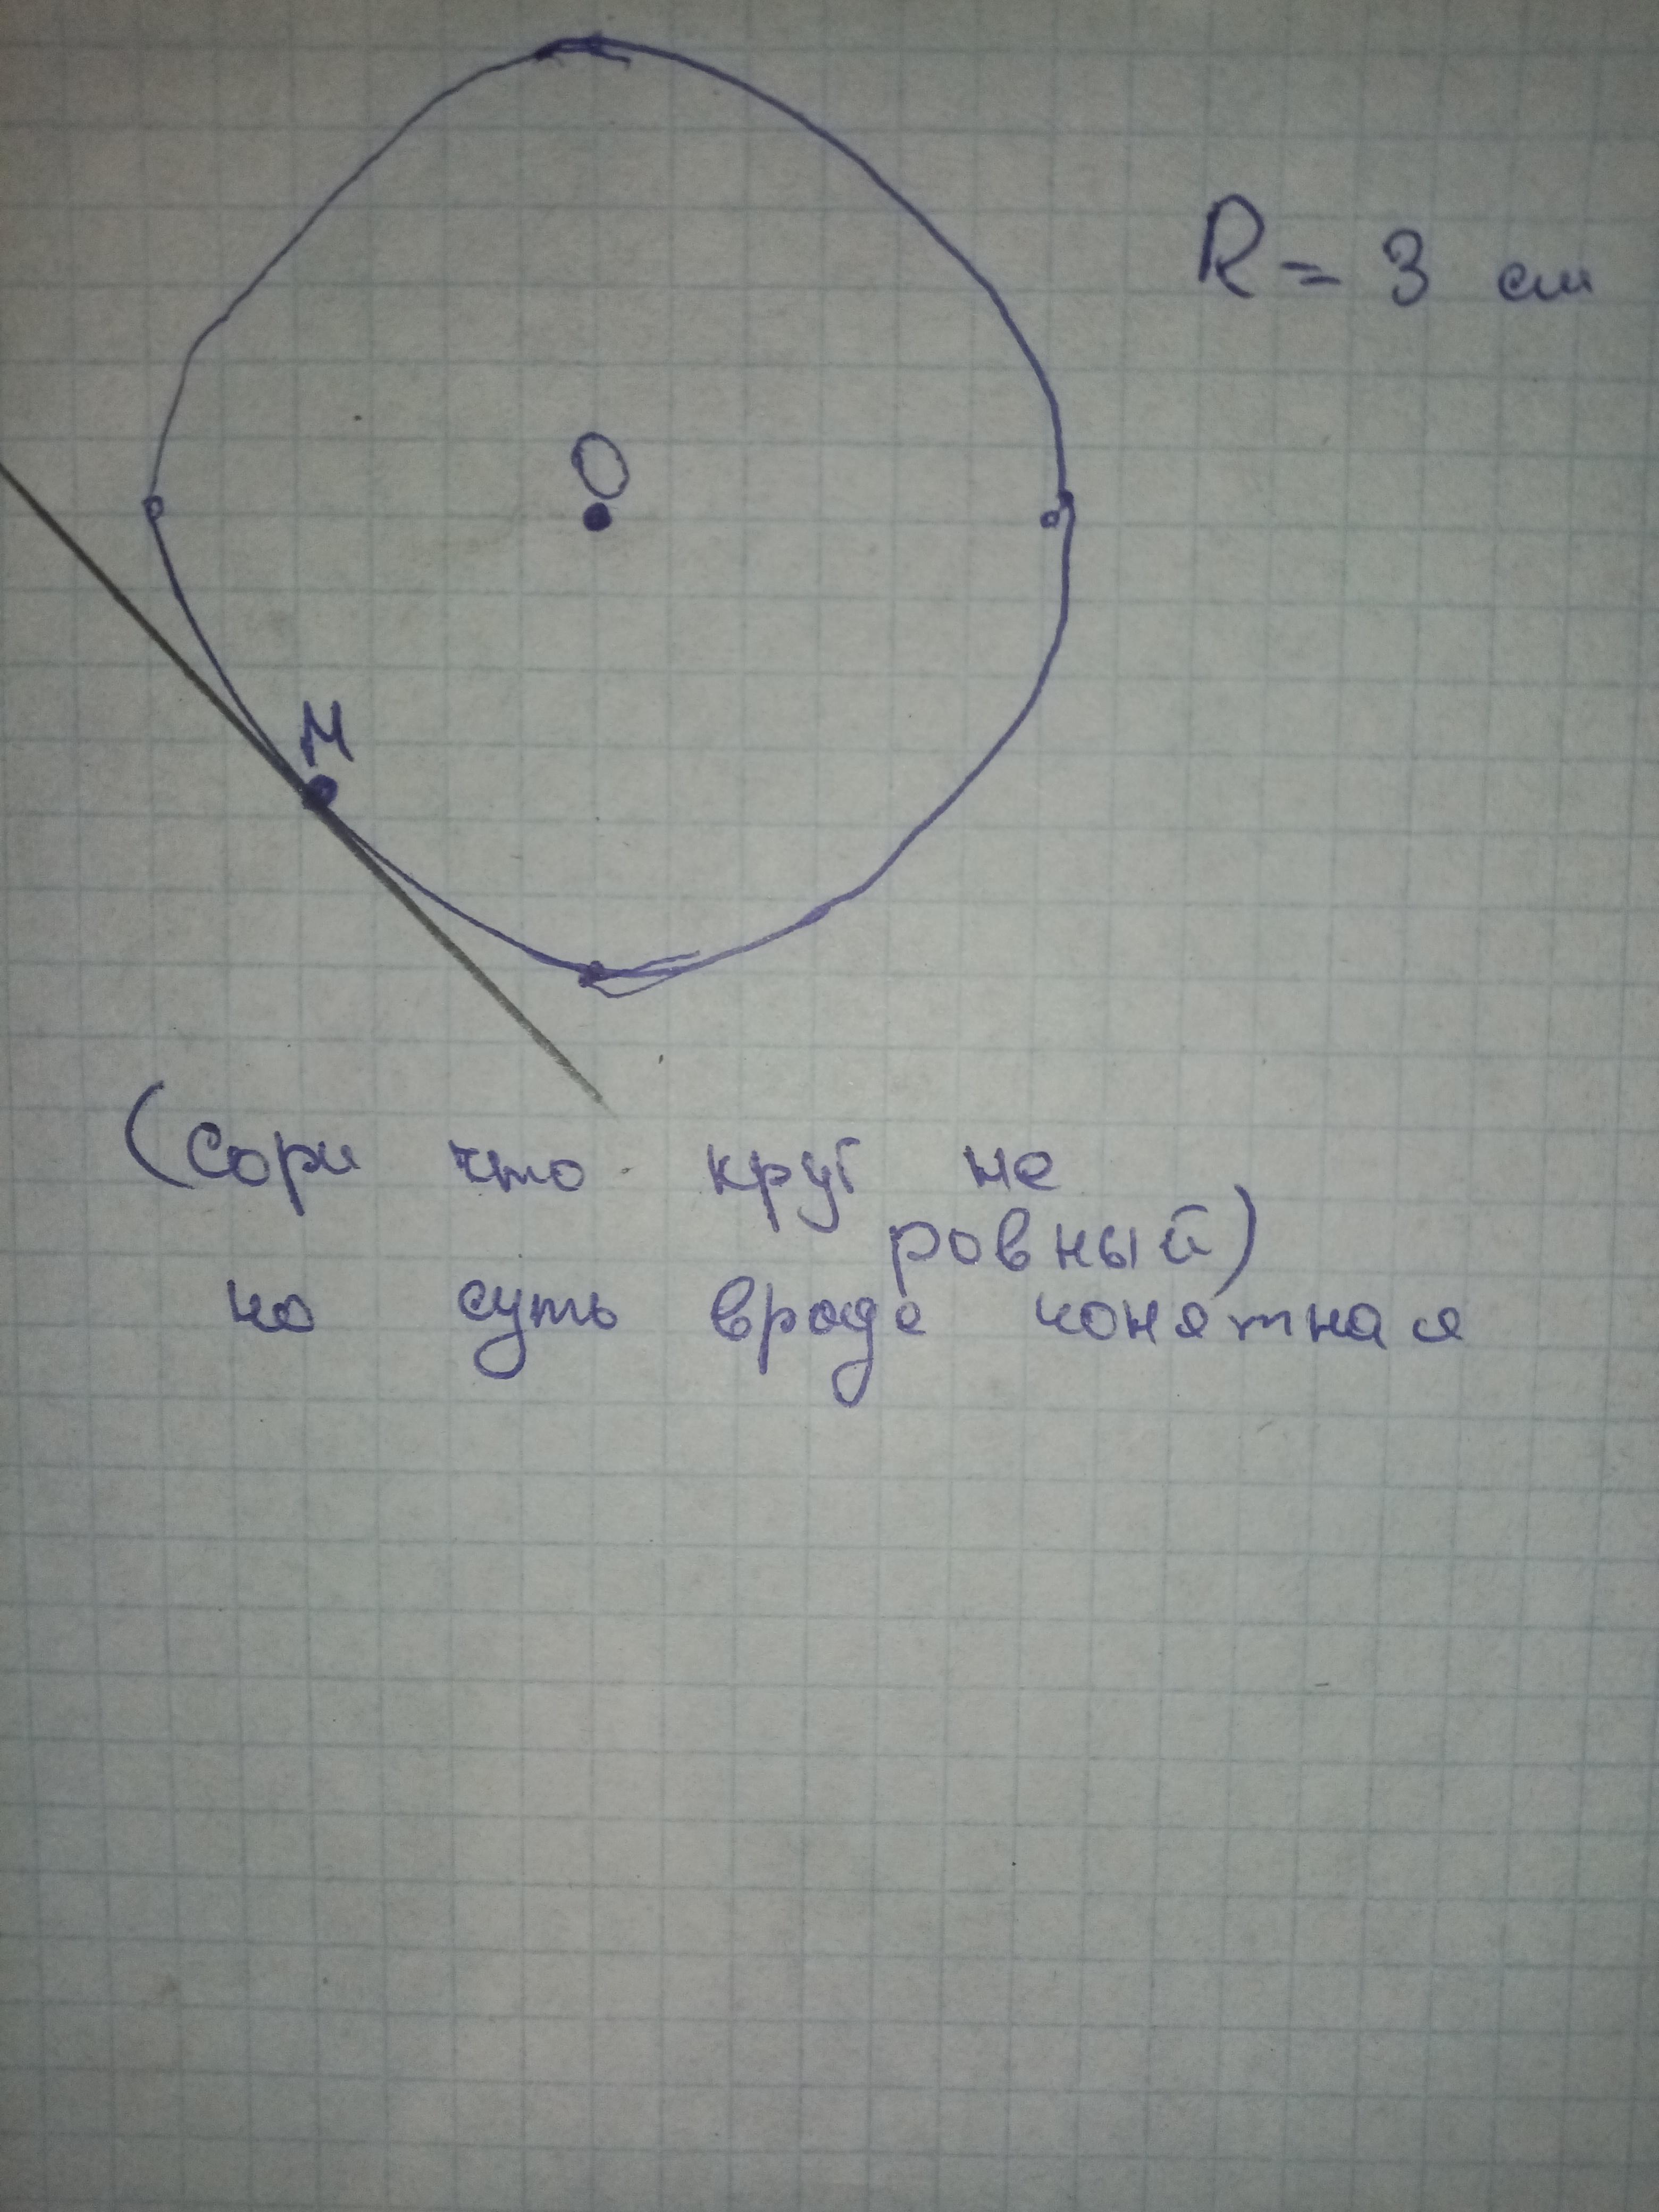 R = 3 см
O
M
(Сори что круг не
ровный)
но суть вроде понятная